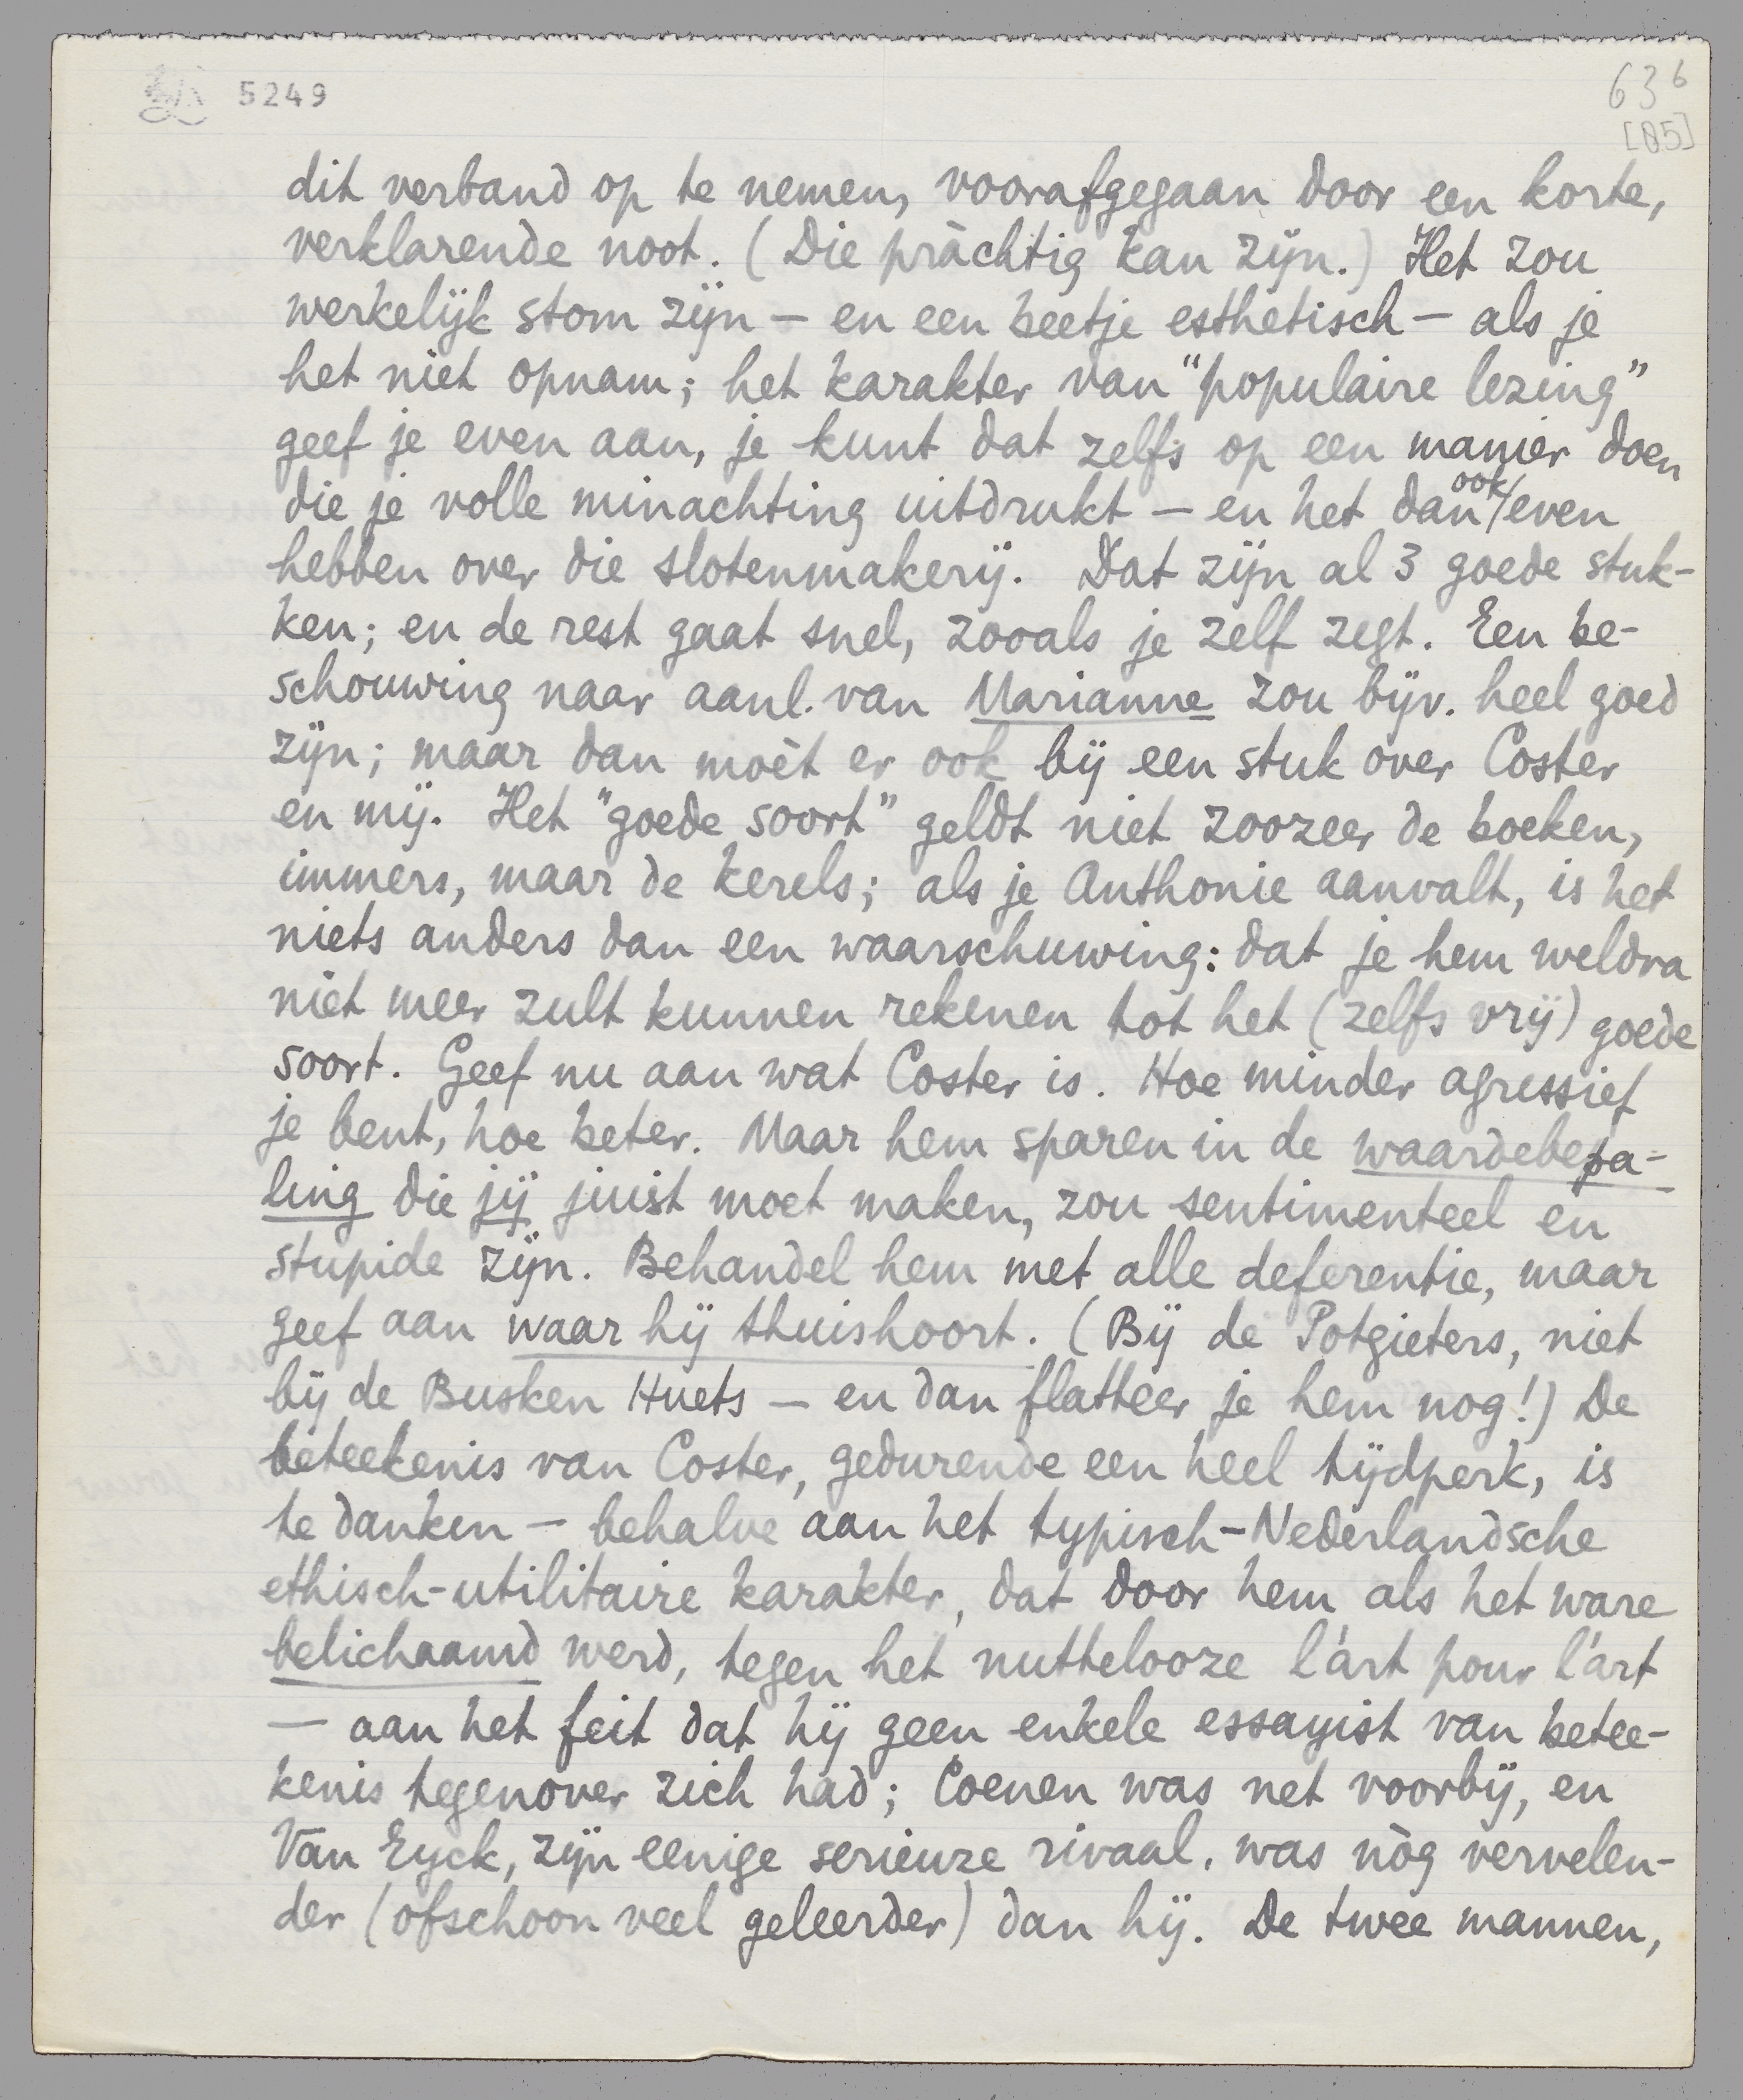 5249
636
[05]
dit verband op te nemen, voorafgegaan door een korte,
verklarende noot. (Die pràchtig kan zijn.) Het zou
werkelijk stom zijn – en een beetje esthetisch – als je
het niet opnam; het karakter van "populaire lezing"
geef je even aan, je kunt dat zelfs op een manier doen
die je volle minachting uitdrukt – en het dan ook even
hebben over die slotenmakerij. Dat zijn al 3 goede stuk-
ken; en de rest gaat snel, zooals je zelf zegt. Een be-
schouwing naar aanl. van Marianne zou bijv. heel goed
zijn; maar dan moèt er ook bij een stuk over Coster
en mij. Het "goede soort" geldt niet zoozeer de boeken,
immers, maar de kerels; als je Anthonie aanvalt, is het
niets anders dan een waarschuwing: dat je hem weldra
niet meer zult kunnen rekenen tot het (zelfs vrij) goede
soort. Geef nu aan wat Coster is. Hoe minder agressief
je bent, hoe beter. Maar hem sparen in de waardebepa-
ling die jij juist moet maken, zou sentimenteel en
stupide zijn. Behandel hem met alle deferentie, maar
geef aan waar hij thuishoort. (Bij de Potgieters, niet
bij de Busken Huets – en dan flatteer je hem nog!) De
beteekenis van Coster, gedurende een heel tijdperk, is
te danken – behalve aan het typisch-Nederlandsche
ethisch-utilitaire karakter, dat door hem als het ware
belichaamd werd, tegen het nuttelooze l'art pour l'art
– aan het feit dat hij geen enkele essayist van betee-
kenis tegenover zich had; Coenen was net voorbij, en
Van Eyck, zijn eenige serieuze rivaal, was nòg vervelen-
der (ofschoon veel geleerder) dan hij. De twee mannen,